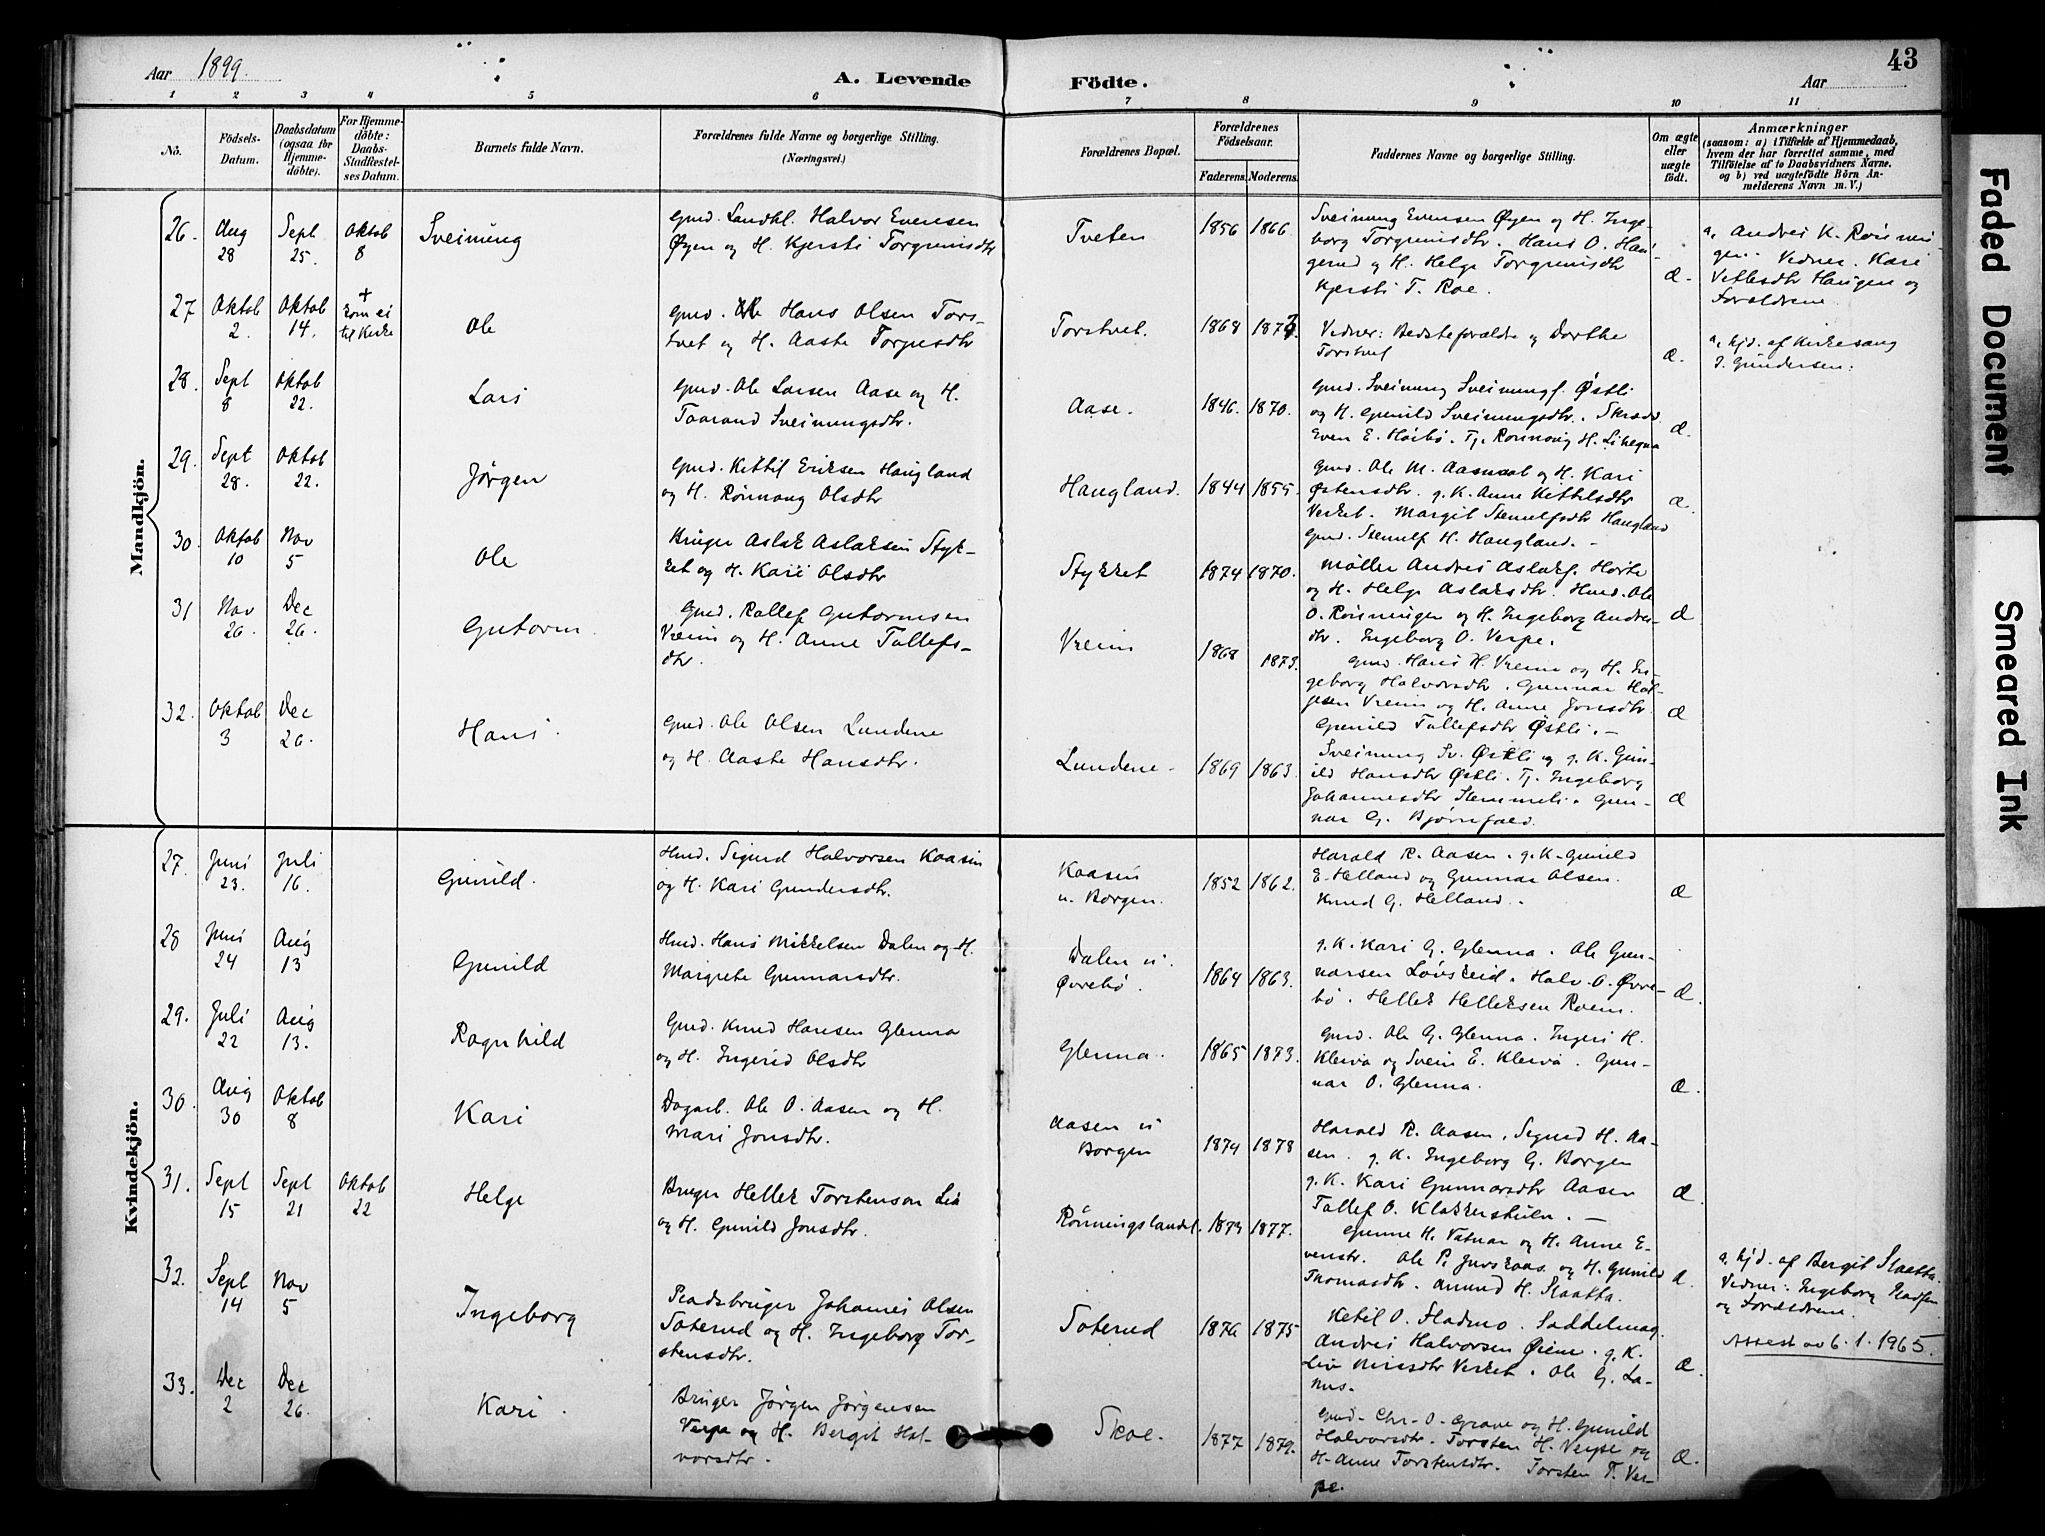 Aar 1899.
A. Levende Födte.
Aar
43
1 2 3 4 5 6 7 8 9 10 11
No.
Födsels-
Datum.
Daabsdatum
(ogsaa for
Hjemme-
döbte).
For Hjemme-
döbte:
Daabs-
Stadfestel-
ses Datum.
Barnets fulde Navn.
Forældrenes fulde Navne og borgerlige Stilling.
(Næringsvei.)
Forældrenes Bopæl.
Forældrenes
Födselsaar.
Faderens. Moderens.
Faddernes Navne og borgerlige Stilling.
Om ægte
eller
uægte
födt.
Anmærkninger
(saasom: a) i Tilfælde af Hjemmedaab,
hvem der har forrettet samme, med
Tilföielse af to Daabsvidners Navne.
og b) ved uægtefödte Börn An-
melderens Navn m. V.)
Mandkjön.
26. Aug 28 Sept 25. Oktob 8 Sveinung
Gmd. Landhl. Halvor Evensen
Øygen og H. Kjersti Torgrimsdtr
Tveten 1856 1866
Sveinung Evensen Øygen og H. Inge-
borg Torgrimsdtr. Hans O. Hau-
gerud og H. Helge Torgrimsdtr
Kjersti T. Roe. Æ.
a, Andres K. Roisnin-
gen. Vedner. Kari
Vetlesdtr Haugen og
Forældrene.
27 Oktob 2. Oktob 14. + kom ei til Kirke Ole
Gmd. Hans Olsen Tors-
tvet og H. Aaste Torjusdtr
Torstvet. 1868
Vedner: Bedsteforældre og Dorthe
Torstvet Æ.
a, hjd. af Kirkesang
J. Gundersen.
28. Sept 8 Oktob 22. Lars
Gmd. Ole Larsen Aase og H.
Taarand Sveinungsdtr.
Aase. 1846. 1870.
Gmd. Sveinung Sveinungs. Østli
og H. Gunild Sveinungsdtr. Skræd.
Even E. Hörbö. Tj. Rönnoug H. Æ.
29. Sept 28. Oktob 22. Jørgen
Gmd. Kittil Eriksen Haugland
og H. Rönnaug Olsdtr
Haugland. 1844 1855.
Gmd. Ole M. og H. Kari
Østensdtr. g. K. Anne Kittelsdtr
Verket. Margit Stenulfsdtr Haugland
Gmd. Stenulf H. Haugland. – Æ.
30. Oktob 10 Nov 5 Ole
Bruger Aslak Aslaksen Styk-
ket og H. Kari Olsdtr
Stykket 1874 1870.
Möller Andres Aslaks. Horte
og H. Helge Aslaksdtr. Hmd. Ole
O. Roisningen og H. Ingeborg Andres-
dtr. Ingeborg O. Verpe. Æ
31 Nov 26. Dec 26. Gutorm.
Gmd. Rollef Gutormsen
Vreim og H. Anne Tollefs-
dtr.
Vreim 1868 1873.
Gmd. Hans H. Vreim og H. In-
geborg Halvorsdtr. Gunnar Hal-
gesen Vreim og H. Anne Jonsdtr.
Gunild Tollefsdtr Østli. – Æ
32. Oktob 3 Dec 26. Hans.
Gmd. Ole Olsen Lundene
og H. Aaste Hansdtr.
Lundene. 1869 1863.
Sveinung Sv. Østli og g. K. Gun-
ild Hansdtr Østli. Tj. Ingeborg
Johannesdtr Stemmeli. Gun-
nar G. Bjørnfald. Æ
Kvindekjön.
27. Juni 23. Juli 16. Gunild.
Hmd. Sigurd Halvorsen Kaasin
og H. Kari Gundersdtr.
Kaasin
u. Borgen. 1852 1862.
Harald R. Aasen. g. K. Gunild
E. Helland og Gunnar Olsen.
Knud G. Helland. Æ
28 Juni 24 Aug 13 Gunild
Hmd. Hans Mikkelsen Dalen og H.
Margrete Gunnarsdtr.
Dalen u.
Øvrebö. 1864 1863.
g. K. Kari G. Glenna. Ole Gun-
narsen Lönskeid. Halv. O. Øvre-
bö. Hellek Helleksen Roem. Æ.
29. Juli 22 Aug 13. Ragnhild
Gmd. Knud Hansen Glenna
og H. Ingerid Olsdtr
Glenna. 1865 1873.
Gmd. Ole G. Glenna. Ingeri H.
Kleiva og Svein E. Kleiva. Gun-
nar O. Glenna. Æ.
30. Aug 30 Oktob 8 Kari
Dagarb. Ole O. Aasen og H.
Mari Jonsdtr.
Aasen u
Borgen 1874 1878
Harald R. Aasen. Sigurd H. Aa-
sen. g. K. Ingeborg G. Borgen
g. K. Kari Gunnarsdtr Aasen
Tollef O. Klakkershuln. – Æ.
31. Sept 15 Sept 21 Oktob 22 Helge
Bruger Hellek Torstenson Lia
og H. Gunild Jonsdtr.
Rönningslandet. 1873 1877.
Gunne H. Vatnar og H. Anne E-
venstr. Ole P. og H. Gunild
Thomasdtr. Amund H. Slaatta. Æ.
a, hjd. af Bergit Slaatta.
Vedner: Ingeborg
og Forældrene.
32. Sept 14 Nov 5 Ingeborg
Pladsbruger Johannes Olsen
Soterud og H. Ingeborg Tor-
stensdtr.
Soterud 1876 1875
Ketil O. Fladmo. Saddelmag.
Andres Halvorsen Øiene. g. K.
Liv Nirisdtr Verket. Ole G. La-
nus. Æ.
Attest av 6.1.1965.
33. Dec 2 Dec 26. Kari.
Bruger Jørgen Jørgensen
Verpe og H. Bergit Hal-
vorsdtr.
Skoe. 1877 1879.
Gmd. Chr. O. Grave og H. Gunild
Halvorsdtr. Torsten H. Verpe og
H. Anne Torstensdtr. Torsten T. Ver-
pe. Æ.
Faded Document
Smeared Ink